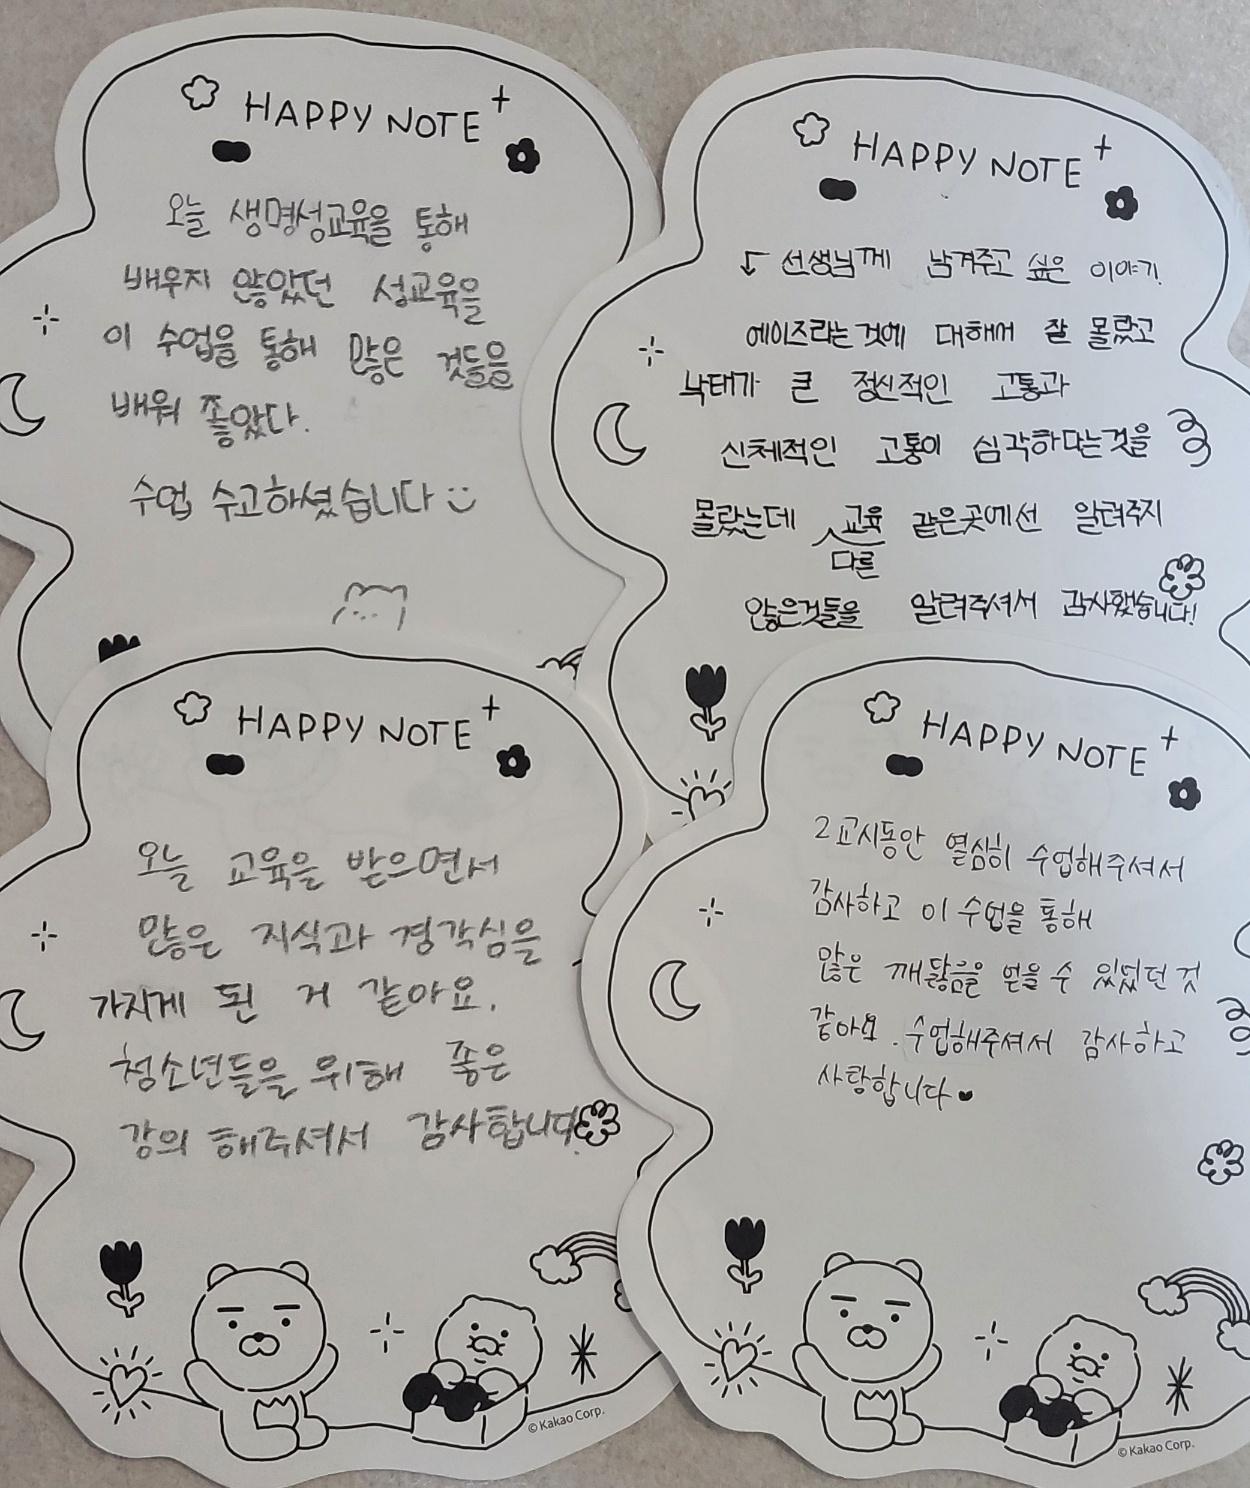 HAPPY NOTE
오늘 생명성교육을 통해
배우지 않았던 성교육을
이 수업을 통해 많은 것들을
배워 좋았다.
수업 수고하셨습니다
HAPPY NOTE
선생님께 남겨주고 싶은 이야기!
에이즈라는것에 대해서 잘 몰랐고
낙태가 큰 정신적인 고통과
신체적인 고통이 심각하다는것을
몰랐는데 다른 교육 같은곳에선 알려주지
않은것들을 알려주셔서 감사했습니다!
HAPPY NOTE
오늘 교육을 받으면서
많은 지식과 경각심을
가지게 된 거 같아요.
청소년들을 위해 좋은
강의 해주셔서 감사합니다.
© Kakao Corp.
HAPPY NOTE
2교시동안 열심히 수업해주셔서
감사하고 이 수업을 통해
많은 깨닳음을 얻을 수 있었던 것
같아요. 수업해주셔서 감사하고
사랑합니다♥
© Kakao Corp.